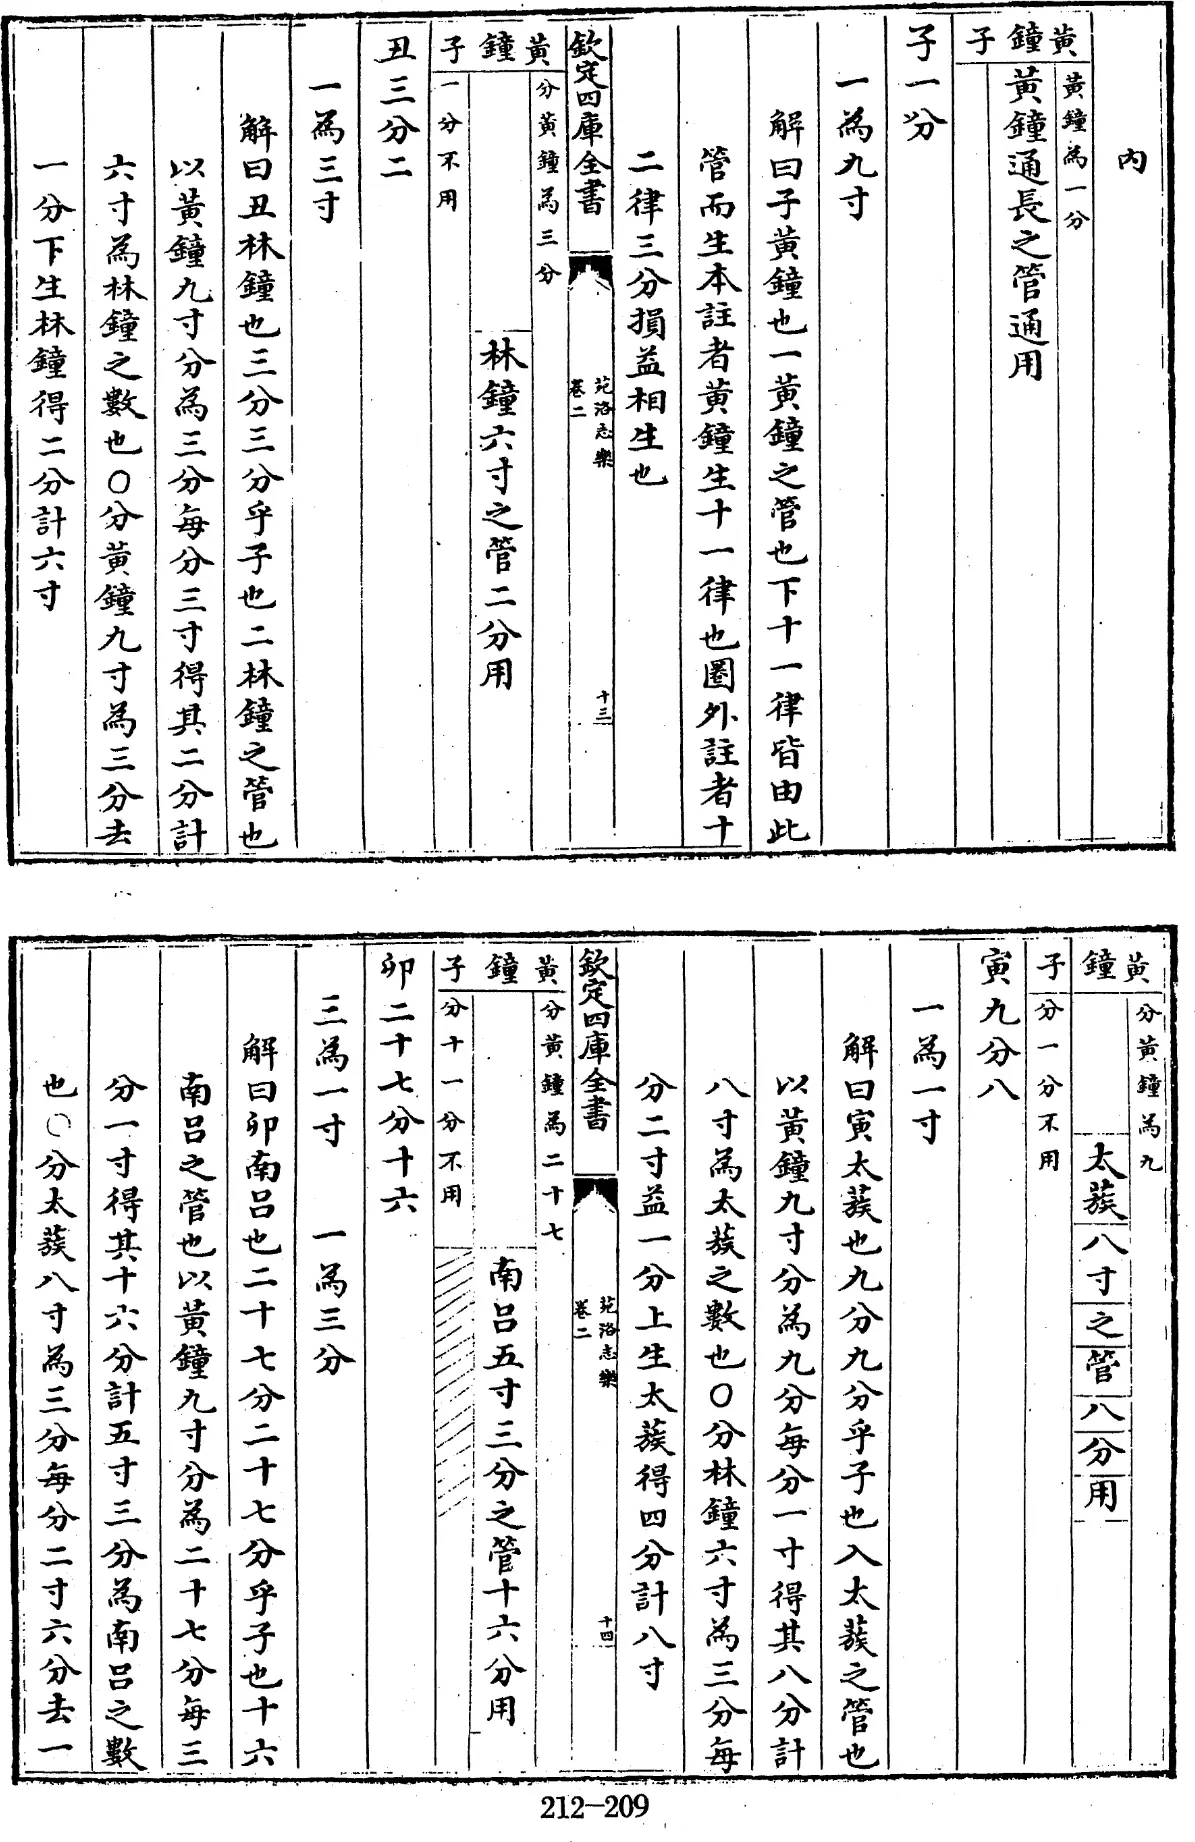 內
黃鐘子
黃鐘為一分
黃鐘通長之管通用
子一分
一為九寸
解曰子黃鐘也一黃鐘之管也下十一律皆由此
管而生本註者黃鐘生十一律也圈外註者十
二律三分損益相生也
欽定四庫全書
苑洛志樂
卷二
十三
黃鐘子
分黃鐘為三分
林鐘六寸之管二分用
一分不用
丑三分二
一為三寸
解曰丑林鐘也三分三分乎子也二林鐘之管也
以黃鐘九寸分為三分每分三寸得其二分計
六寸為林鐘之數也○分黃鐘九寸為三分去
一分下生林鐘得二分計六寸
黃鐘子
分黃鐘為九
太蔟八寸之管八分用
分一分不用
寅九分八
一為一寸
解曰寅太蔟也九分九分乎子也入太蔟之管也
以黃鐘九寸分為九分每分一寸得其八分計
八寸為太蔟之數也○分林鐘六寸為三分每
分二寸益一分上生太蔟得四分計八寸
欽定四庫全書
苑洛志樂
卷二
十四
黃鐘子
分黃鐘為二十七
南呂五寸三分之管十六分用
分十一分不用
卯二十七分十六
三為一寸 一為三分
解曰卯南呂也二十七分二十七分乎子也十六
南呂之管也以黃鐘九寸分為二十七分每三
分一寸得其十六分計五寸三分為南呂之數
也○分太蔟八寸為三分每分二寸六分去一
212-209